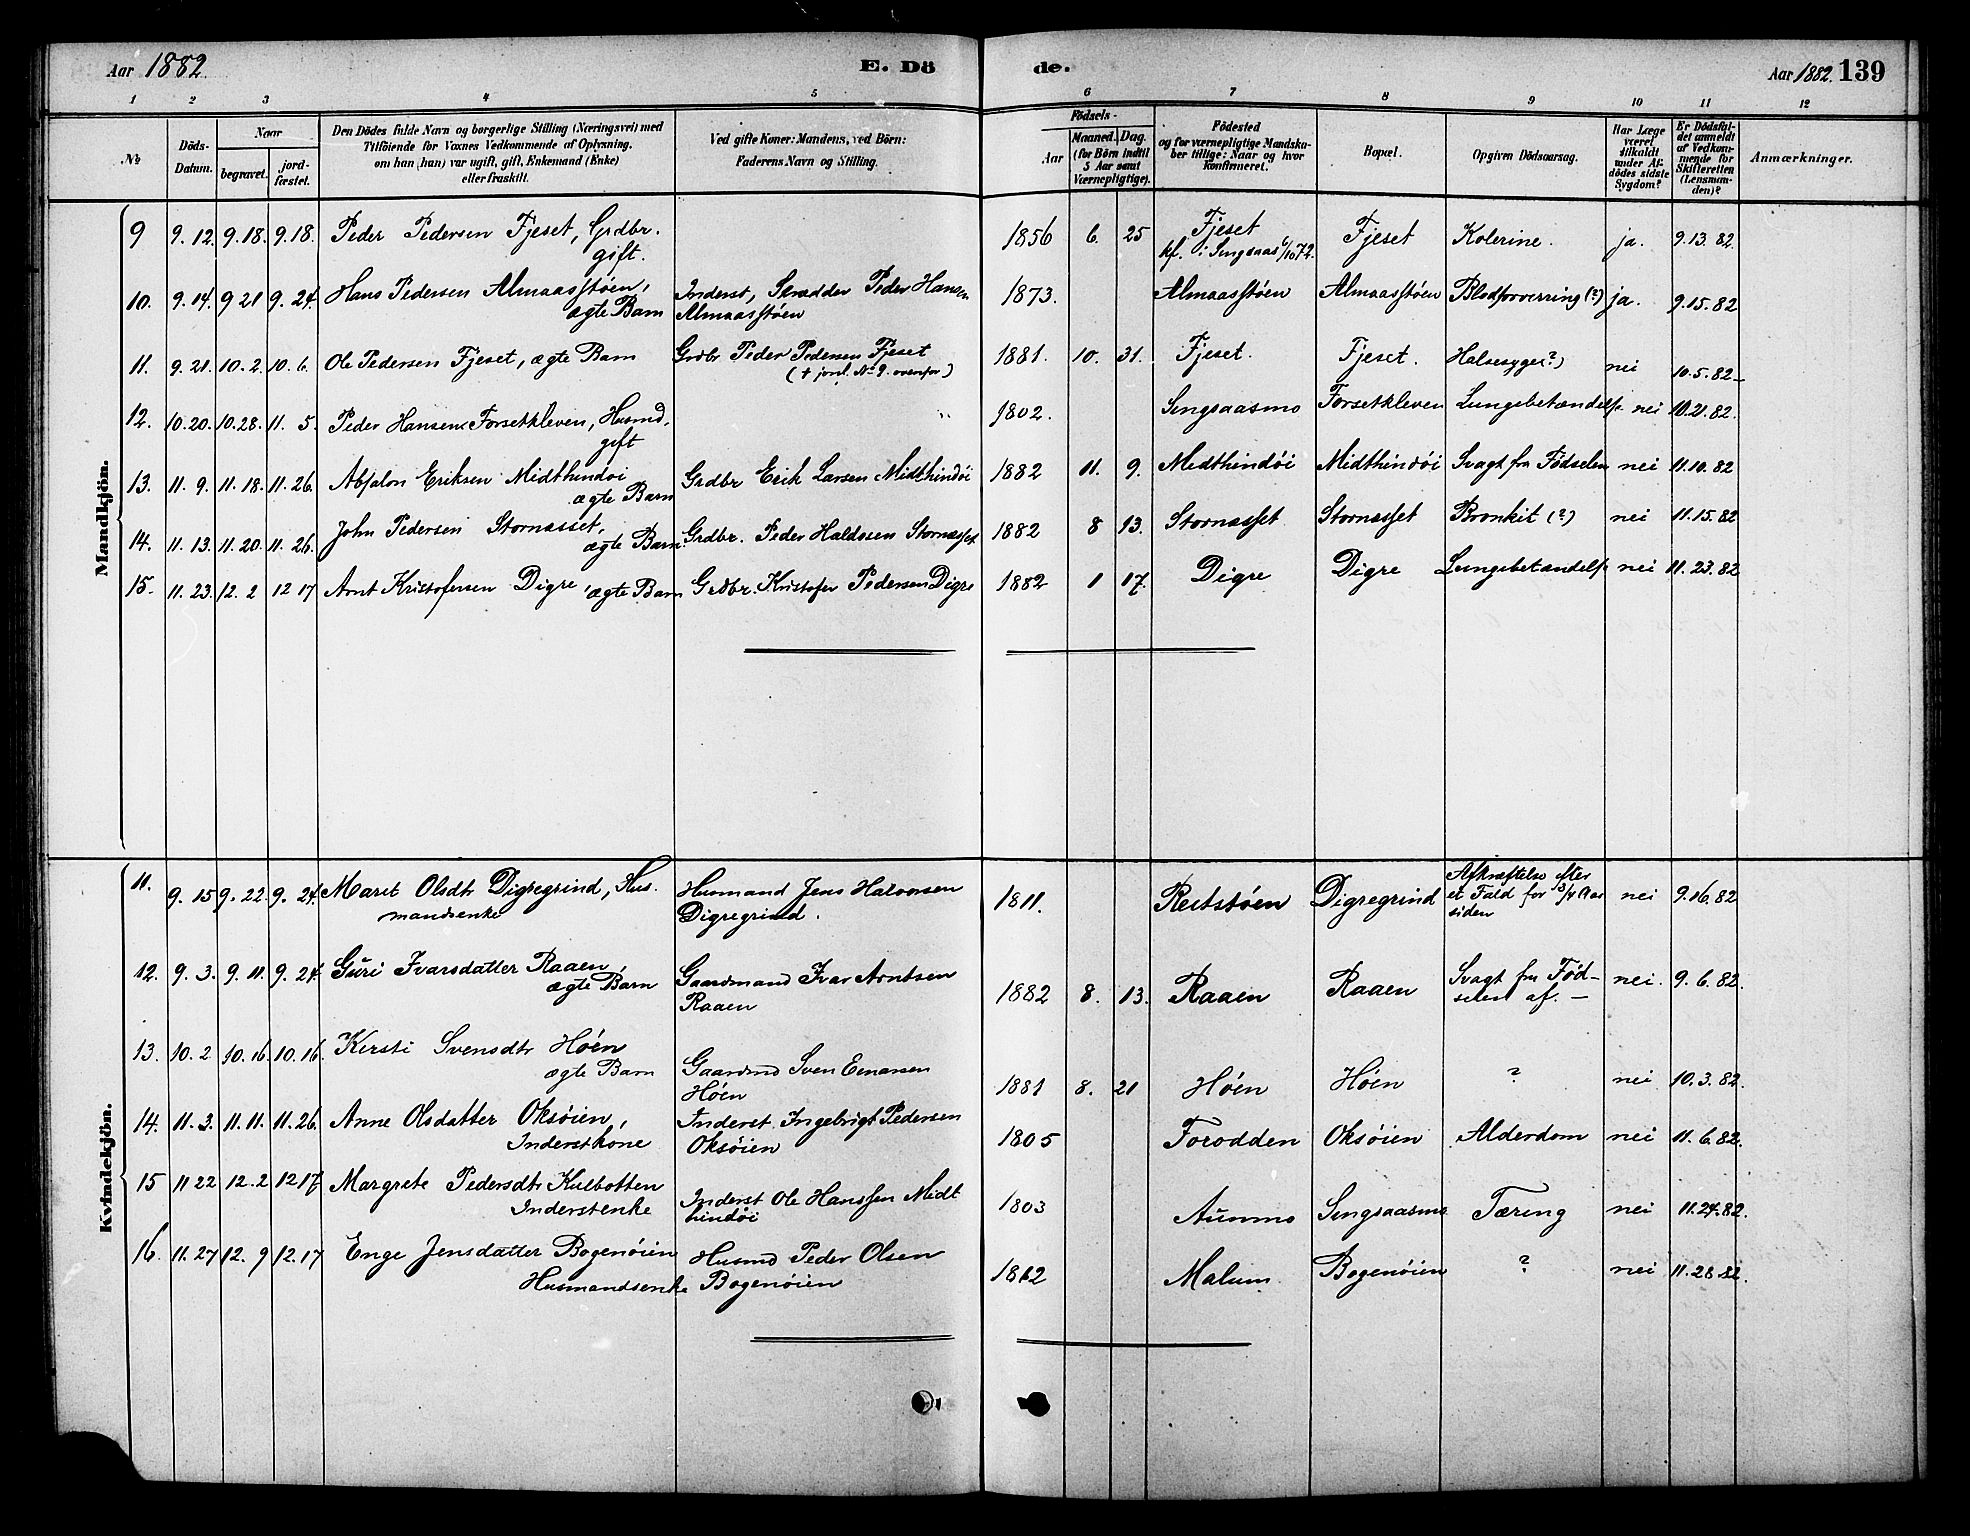 Aar 1882. E. Dö de. Aar 1882. 139
1 2 3 4 5 6 7 8 9 10 11 12
No
Döds-Datum.
Naar
begravet.
jord-fæstet.
Den Dödes fulde Navn og borgerlige Stilling (Næringsvei) med
Tilföiende for Voxnes Vedkommende af Oplysning,
om han (hun) var ugift, gift, Enkemand (Enke)
eller fraskilt.
Ved gifte Koner: Mandens, ved Börn:
Faderens Navn og Stilling.
Födsels-
Aar
Maaned. Dag.
(for Börn indtil
5 Aar samt
Værnepligtige).
Födested
og for værnepligtige Mandska-
ber tillige: Naar og hvor
Konfirmeret.
Bopæl.
Opgiven Dödsaarsag.
Har Læge
været
tilkaldt
under Af-
dödes sidste
Sygdom?
Er Dödsfal-
det anmeldt
af Vedkom-
mende for
Skifteretten
(Lensman-
den)?
Anmærkninger.
Mandkjön.
9 9.12. 9.18. 9.18. Peder Pedersen Fjeset, Grdbr. 1856 6. 25 Fjeset Fjeset Kolerine. ja. 9.13.82.
gift. kf. i Singsaas 6/10 72.
10. 9.14. 9 21 9.24. Hans Pedersen Almaasstöen, Inderst, Skrædder Peder Hansen 1873. Almaasstöen Almaasstöen Blodforverring (?) ja. 9.15.82
ægte Barn Almaasstöen
11. 9.21. 10.2. 10.6. Ole Pedersen Fjeset, ægte Barn Grdbr Peder Pedersen Fjeset 1881. 10. 31. Fjeset. Fjeset. Halsesyge(?) nei 10.5.82
( † jvnf. No 9. ovenfor )
12. 10.20. 10.28. 11. 5. Peder Hansen Forsetkleven, Husmd, " 1802. Singsaasmo Forsetkleven Lungebetændelse nei 10.21.82.
gift
13. 11.9. 11.18. 11.26. Absalon Eriksen Midthindöi Grdbr Erik Larsen Midthindöi 1882 11. 9. Midthindöi Midthindöi Svagt fra Födselen nei 11.10.82
ægte Barn
14. 11.13. 11.20. 11.26. John Pedersen Stornæsset, Grdbr. Peder Haldosen Stornæsset 1882 8 13. Stornæsset Stornæsset Bronkit (?) nei 11.15.82
ægte Barn
15. 11.23. 12.2 12 17 Arnt Kristofersen Digre, ægte Barn Grdbr. Kristofer Pedersen Digre 1882 1 17. Digre Digre Lungebetændelse nei 11.23.82
Kvindekjön.
11. 9.15 9.22. 9.24. Maret Olsdtr Digregrind, Hus- Husmand Jens Halvorsen 1811. Reitstöen Digregrind Afkræftelse efter nei 9.16.82
mandsenke Digregrind. et Fald for 3/4 Aar
siden
12. 9.3. 9.11. 9.24. Guri Ivarsdatter Raaen, Gaardmand Ivar Arntsen 1882 8. 13. Raaen Raaen Svagt fra Föd- nei. 9.6.82.
ægte Barn Raaen selen af. —
13. 10.2 10.16. 10.16. Kirsti Svensdtr Höen Gaardmd Sven Einarsen 1881 8. 21 Höen Höen ? nei 10.3.82.
ægte Barn Höen
14. 11.3. 11.11. 11.26. Anne Olsdatter Oksöien, Inderst Ingebrigt Pedersen 1805 Forodden Oksöien Alderdom nei 11.6.82.
Inderstkone Oksöien
15 11 22 12.2 12 17 Margrete Pedersdtr Kulbotten Inderst Ole Hanssen Midt 1803 Aunmo Singsaasmo Tæring nei 11.24.82.
Inderstenke hindöi
16. 11.27 12.9 12.17 Enge Jensdatter Bogenöien Husmd Peder Olsen 1812 Malum Bogenöien ? nei 11.28.82.
Husmandsenke Bogenöien